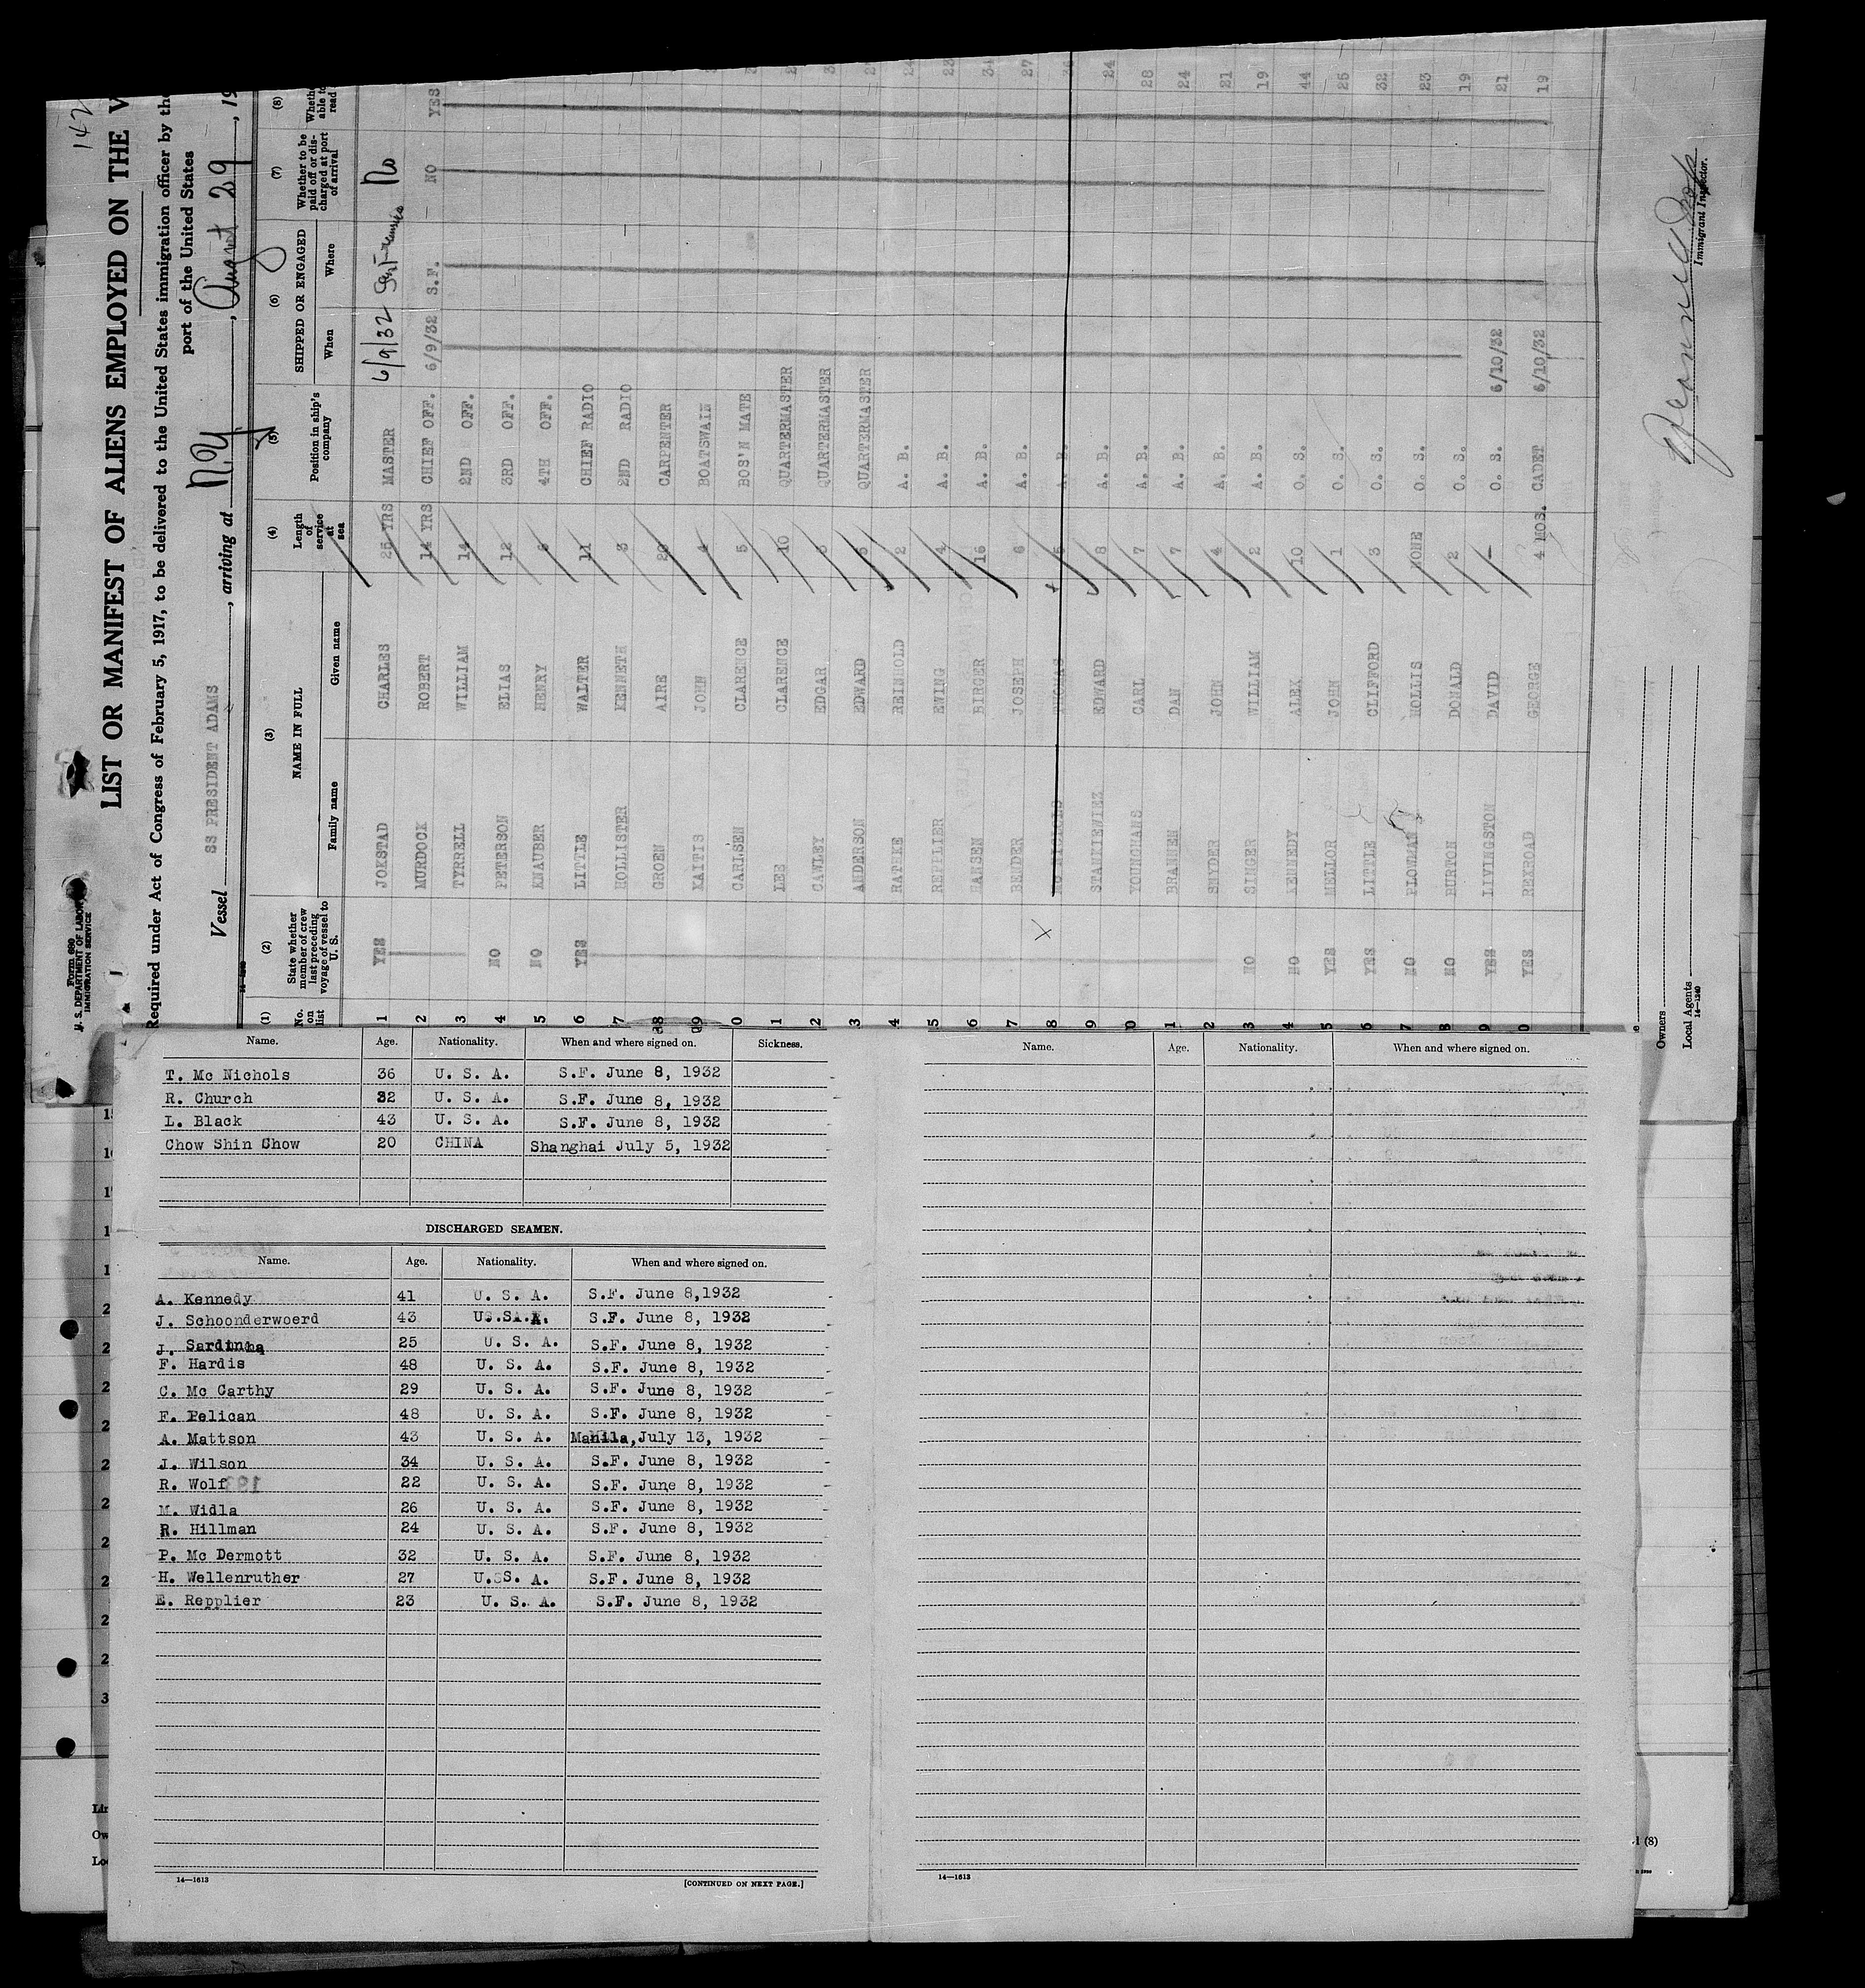 142
Form 680
U. S. DEPARTMENT OF LABOR
IMMIGRATION SERVICE
LIST OR MANIFEST OF ALIENS EMPLOYED ON THE V
Required under Act of Congress of February 5, 1917, to be delivered to the United States immigration officer by the
port of the United States
Vessel SS PRESIDENT ADAMS, arriving at N.Y., August 29, 19
(1) (2) (3) (4) (5) (6) (7) (8)
No. on list
State whether member of crew last preceding voyage of vessel to U. S.
NAME IN FULL
Family name Given name
Length of service at sea
Position in ship's company
SHIPPED OR ENGAGED
When Where
Whether to be paid off or discharged at port of arrival
Whethe able to read
1 YES JOKSTAD CHARLES 25 YRS MASTER 6/9/32 San Francisco No
2 MURDOCK ROBERT 14 YRS CHIEF OFF. 6/9/32 S.F. NO YES
3 TYRRELL WILLIAM 14 2ND OFF.
4 NO PETERSON ELIAS 12 3RD OFF.
5 NO KNAUBER HENRY 4TH OFF.
6 YES LITTLE WALTER 11 CHIEF RADIO
7 HOLLISTER KENNETH 3 2ND RADIO
8 GROEN AIRE 20 CARPENTER
9 KAITIS JOHN 4 BOATSWAIN
0 CARLSEN CLARENCE 5 BOS'N MATE
1 LEE CLARENCE 10 QUARTERMASTER
2 CAWLEY EDGAR QUARTERMASTER
3 ANDERSON EDWARD 5 QUARTERMASTER
4 RATHKE REINHOLD 2 A. B. 24
5 REPPLIER EWING 4 A. B. 23
6 HANSEN BIRGER 16 A. B. 34
7 BENDER JOSEPH 6 A. B. 27
8 MC NICHOLS THOMAS 5 A. B. 36
9 STANKIEWIEZ EDWARD 8 A. B. 24
0 YOUNGHANS CARL 7 A. B. 28
1 BRANNEN DAN 7 A. B. 24
2 SNYDER JOHN 4 A. B. 21
3 NO SINGER WILLIAM 2 A. B. 19
4 NO KENNEDY ALEX 10 O. S. 44
5 YES MELLOR JOHN 1 O. S. 25
6 YES LITTLE CLIFFORD 3 O. S. 32
7 NO PLOWMAN HOLLIS NONE O. S. 23
8 NO BURTON DONALD 2 O. S. 19
9 YES LIVINGSTON DAVID 1 O. S. 6/10/32 21
0 YES REXROAD GEORGE 4 MOS. CADET 6/10/32 19
Immigrant Inspector.
Owners
Local Agents
14—1240
Name. Age. Nationality. When and where signed on. Sickness.
T. Mc Nichols 36 U. S. A. S.F. June 8, 1932
R. Church 32 U. S. A. S.F. June 8, 1932
L. Black 43 U. S. A. S.F. June 8, 1932
Chow Shin Chow 20 CHINA Shanghai July 5, 1932
DISCHARGED SEAMEN.
Name. Age. Nationality. When and where signed on.
A. Kennedy 41 U. S. A. S.F. June 8,1932
J. Schoonderwoerd 43 U.S.A. S.F. June 8, 1932
J. Sardinha 25 U. S. A. S.F. June 8, 1932
F. Hardis 48 U. S. A. S.F. June 8, 1932
C. Mc Carthy 29 U. S. A. S.F. June 8, 1932
F. Pelican 48 U. S. A. S.F. June 8, 1932
A. Mattson 43 U. S. A. Manila, July 13, 1932
J. Wilson 34 U. S. A. S.F. June 8, 1932
R. Wolf 22 U. S. A. S.F. June 8, 1932
M. Widla 26 U. S. A. S.F. June 8, 1932
R. Hillman 24 U. S. A. S.F. June 8, 1932
P. Mc Dermott 32 U. S. A. S.F. June 8, 1932
H. Wellenruther 27 U.S. A. S.F. June 8, 1932
E. Repplier 23 U. S. A. S.F. June 8, 1932
14—1613
[CONTINUED ON NEXT PAGE.]
Name. Age. Nationality. When and where signed on.
14—1613